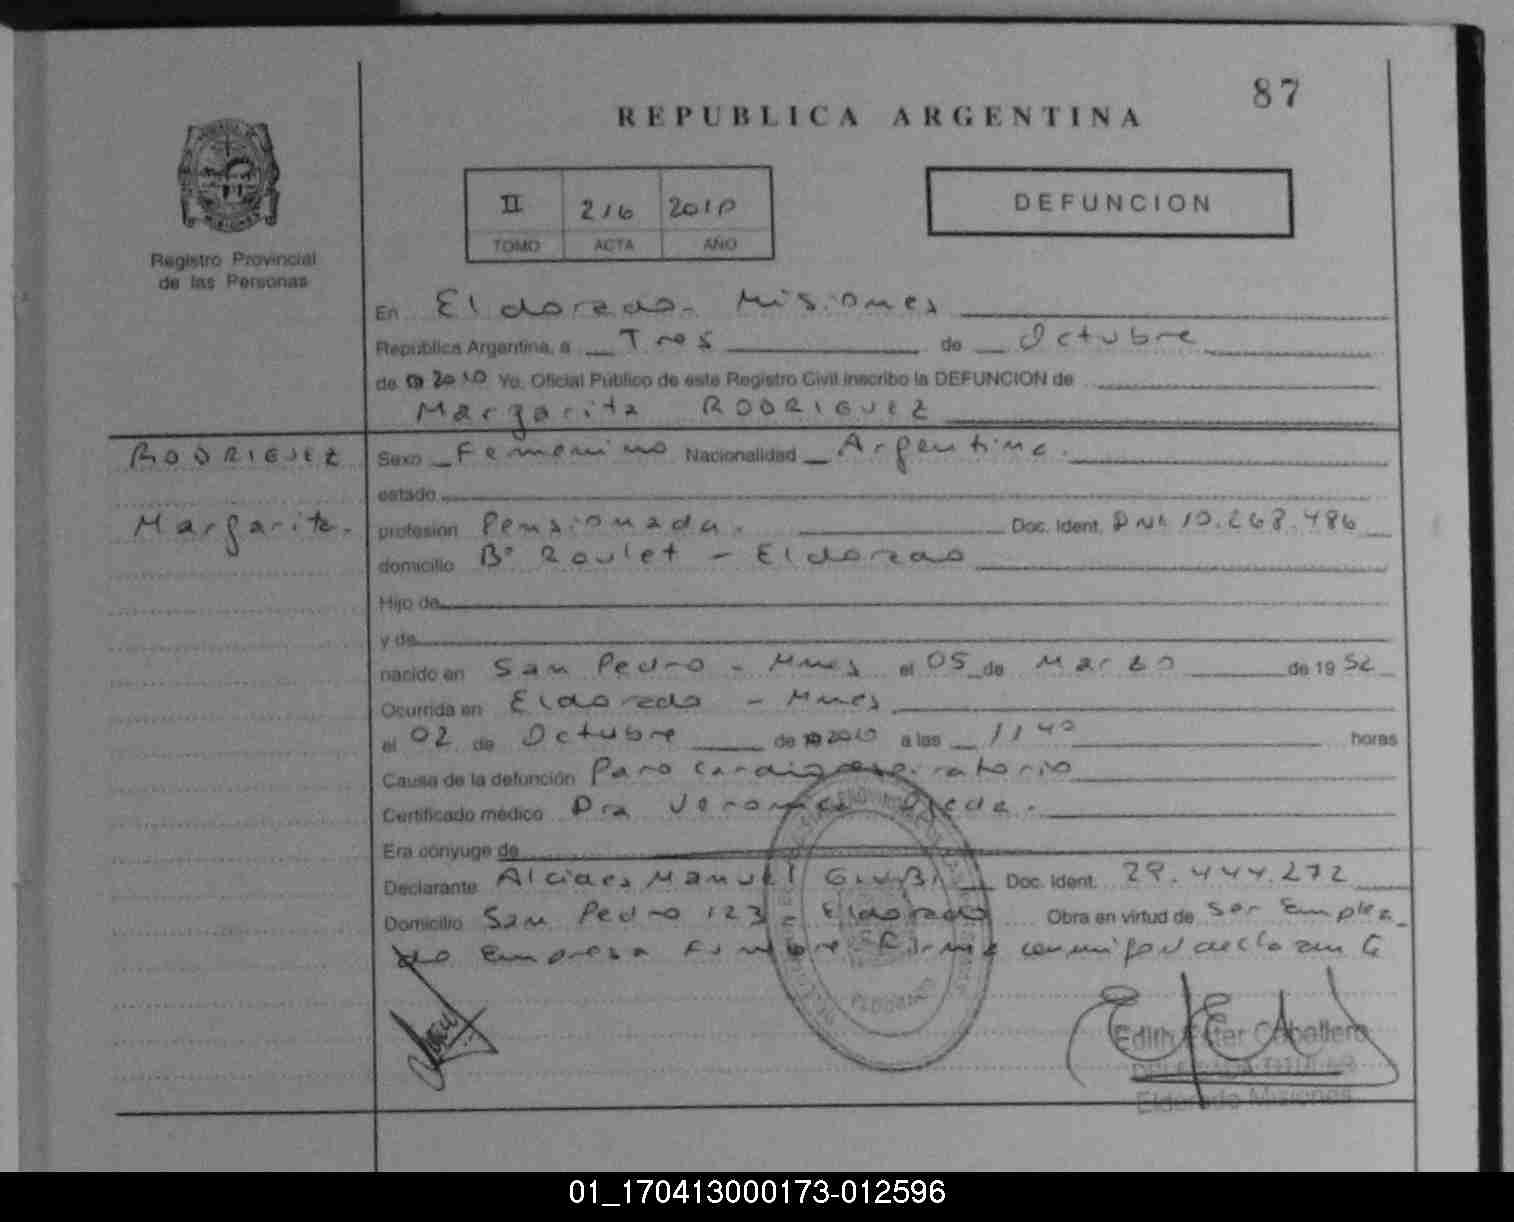 87
REPUBLICA ARGENTINA
II 216 2010
TOMO ACTA AÑO
DEFUNCION
Registro Provincial
de las Personas
En Eldorado - Misiones
República Argentina, a Tres de Octubre
de 2010 Yo, Oficial Público de este Registro Civil inscribo la DEFUNCION de
Margarita RODRIGUEZ
RODRIGUEZ
Margarita.
Sexo Femenino Nacionalidad Argentina.
estado
profesión Pensionada. Doc. Ident. DNI 10.268.486
domicilio Bº Roulet - Eldorado
Hijo de
y de
nacido en San Pedro - Mnes el 05 de Marzo de 1952
Ocurrida en Eldorado - Mnes
el 02 de Octubre de 2010 a las 11 40 horas
Causa de la defunción Paro cardiorespiratorio
Certificado médico Dra Veronica Ojeda.
Era cónyuge de
Declarante Alcides Manuel Doc. Ident. 29.444.272
Domicilio San Pedro 123 - Eldorado Obra en virtud de ser emplea
do empresa Funebre Firma conmigo declarante
ELDORADO
Edith Ester Caballero
DELEGADA TITULAR
Eldorado Misiones
01_170413000173-012596